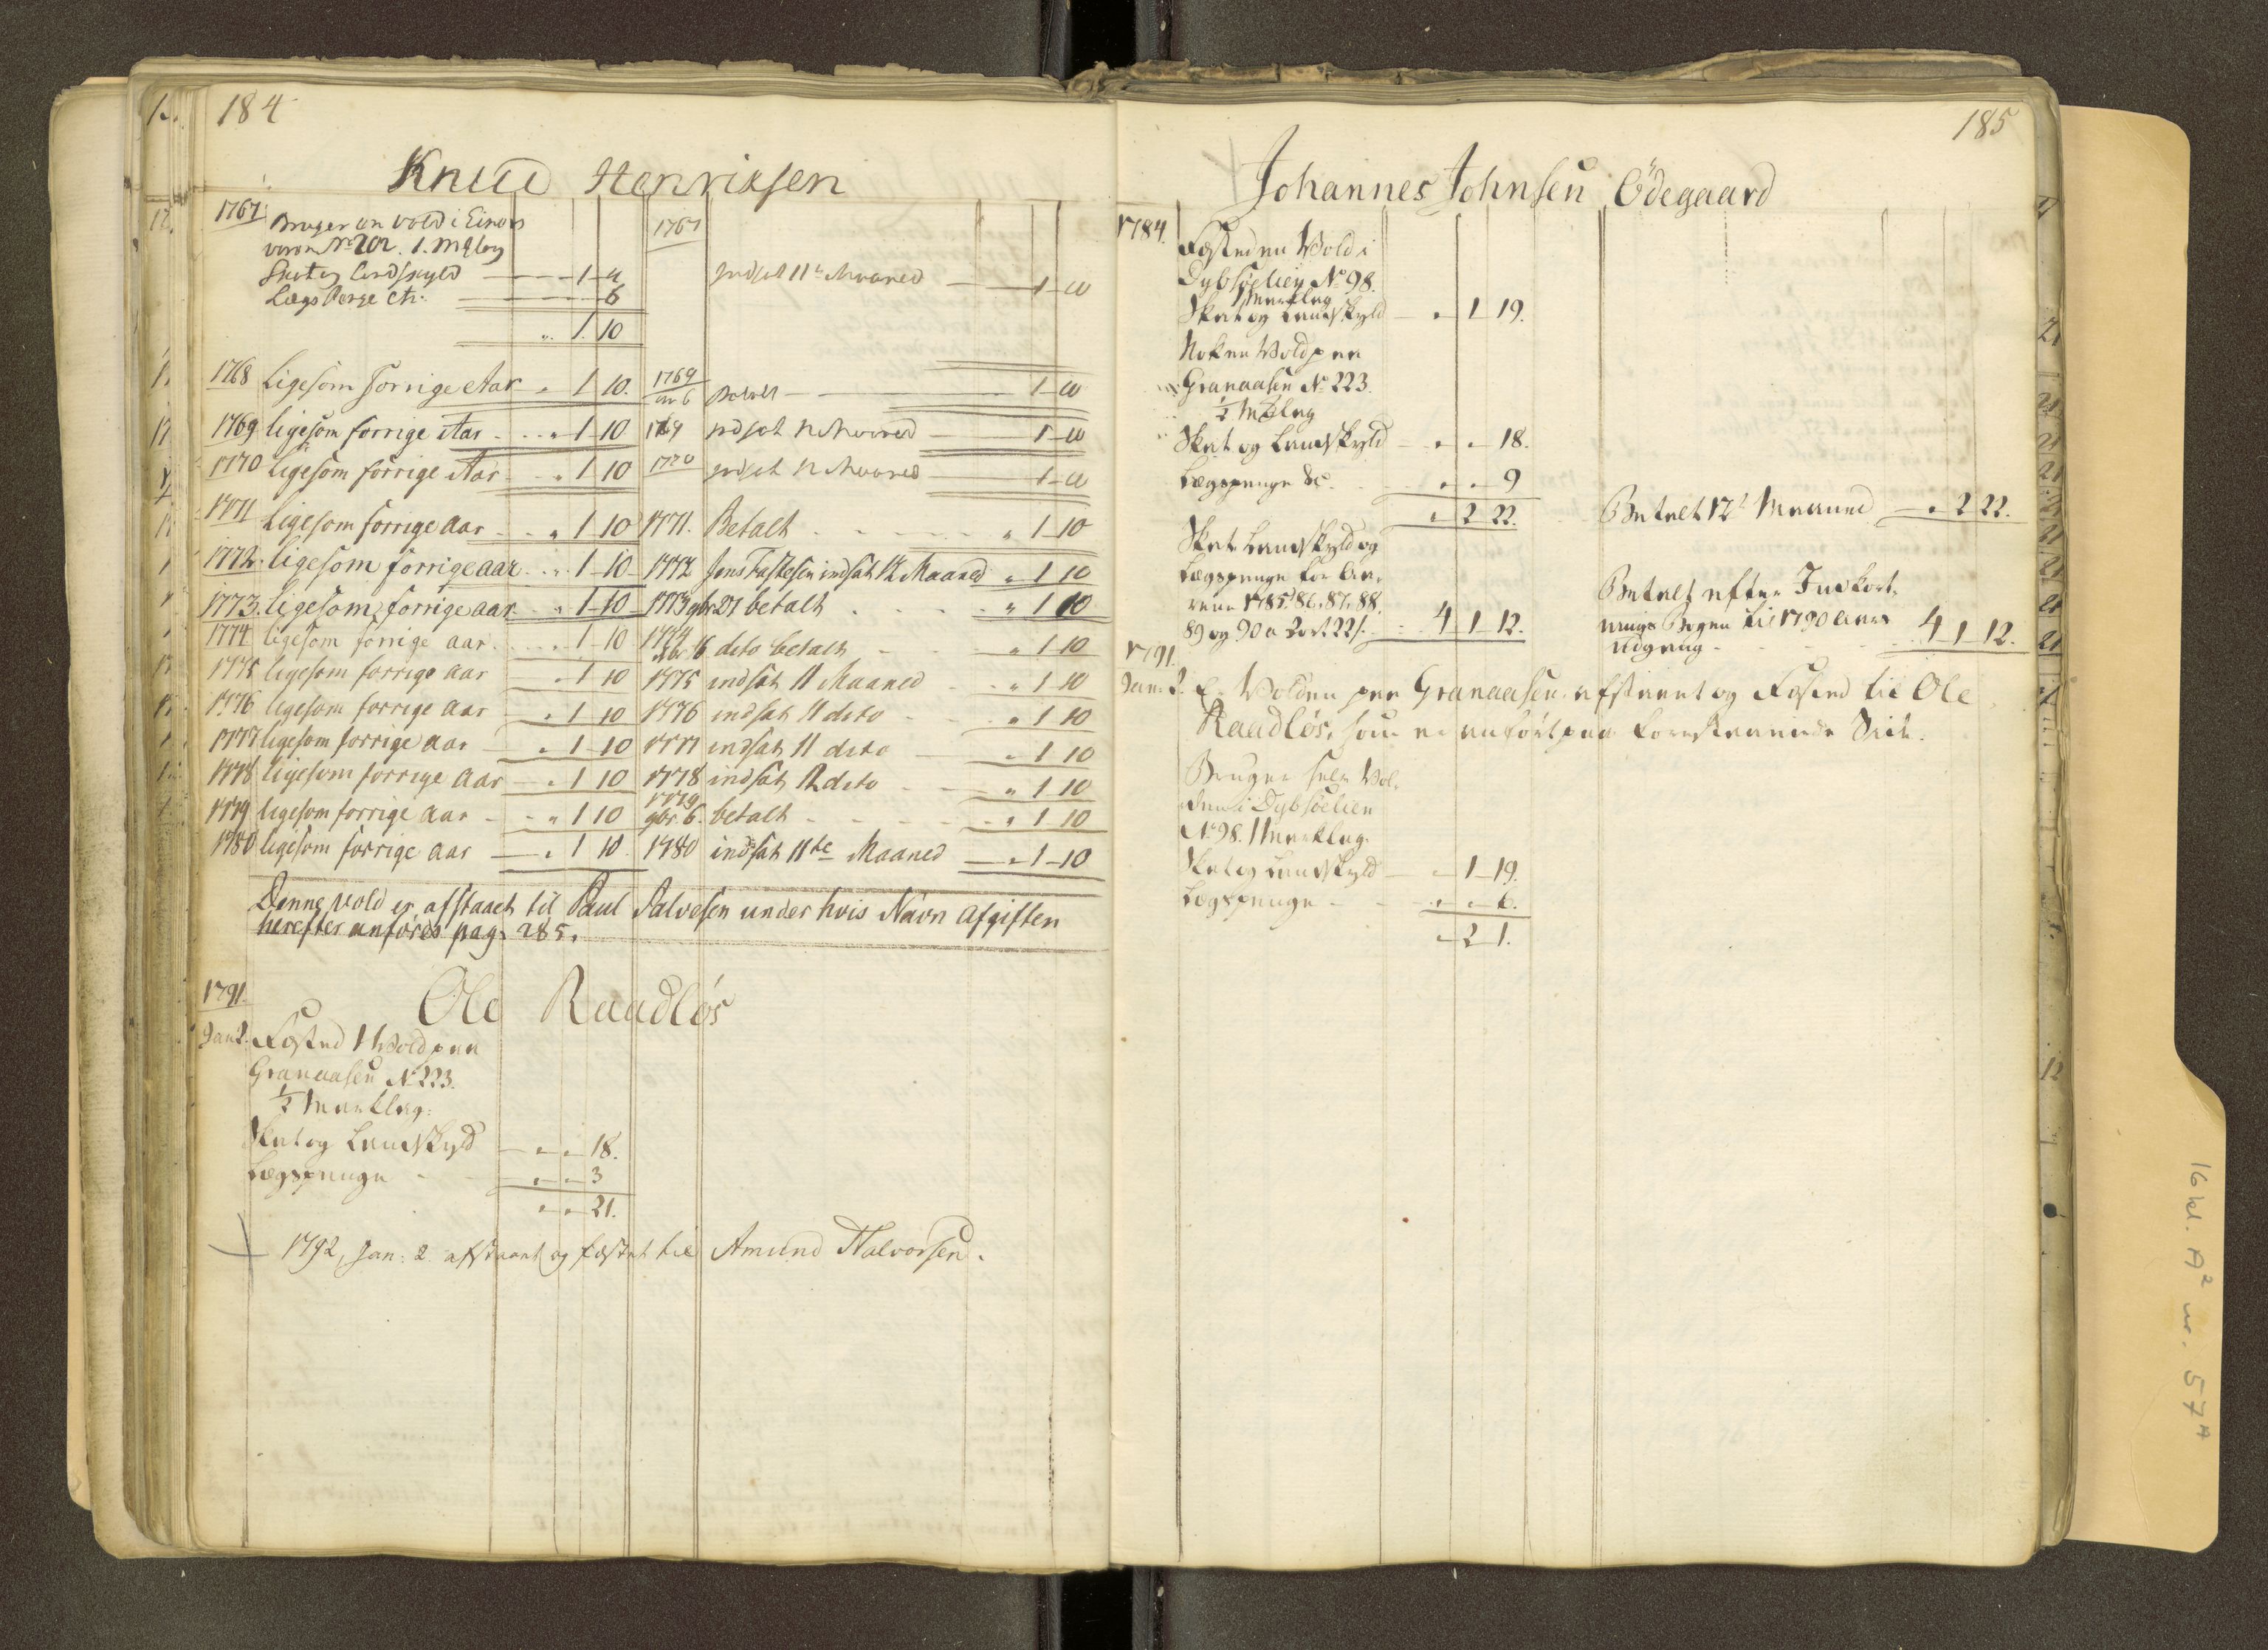 184
Knud Henriksen
1767 Bruger en vold i Einors
voren No 202. 1. Mælag
Skat og landskyld 1 4
Lægs Penge etc. 6
" 1 10
1767 indsat 11te Maaned 1 10
1768 Ligesom forrige Aar " 1 10. 1769 Betalt 1 10
1769 ligesom forrige Aar " 1 10 1769 indsat 12 Maaned 1 10
1770 ligesom forrige Aar " 1 10 1770 indsat 12 Maaned 1 10
1771 Ligesom forrige aar " 1 10 1771. Betalt " 1 10
1772. ligesom forrige aar " 1 10 1772 Jens Fastesen indsat 12 Maaned " 1 10
1773. ligesom forrige aar " 1 10 1773 9br 27 betalt " 1 10
1774 ligesom forrige aar " 1 10 1774 16. dito betalt " 1 10
1775 ligesom forrige aar " 1 10 1775 indsat 11 Maaned " 1 10
1776 ligesom forrige aar " 1 10 1776 indsat 11 dito " 1 10
1777 ligesom forrige aar " 1 10 1777 indsat 11 dito " 1 10
1778 ligesom forrige aar " 1 10 1778 indsat 12 dito " 1 10
1779 ligesom forrige aar " 1 10 1779 9br 6. betalt " 1 10
1780 ligesom forrige aar " 1 10 1780 indsat 11te Maaned " 1 10
Denne vold er afstaaet til Paul Salvesen under hvis Navn Afgiften
herefter anföres pag. 285.
1791. Ole Raadlös
Jan 2. Fæsted 1 Vold paa
Granaasen No 223.
1/2 Marklag.
Skat og Landskyld " " 18.
Lægspenge " " 3
" " 21.
1792, Jan: 2 afstaaet og fæstet til Amund Halvorsen.
185
Johannes Johnsen Ödegaard
1784. Fæsted en Vold i
Dybsöelien No 98.
1 Marklag
Skat og Landskyld " 1 19.
Nok en Vold paa
Granaasen No 223.
1/2 Mælag
Skat og Landskyld " " 18.
Lægspenge &c. " " 9
" 2 22. Betalt 12te Maaned " 2 22.
Skat Landskyld og
Lægspenge for Aa-
rene 1785. 86. 87. 88.
89 og 90 a 2 ort 22 s. 4 1 12.
Betalt efter Indkort-
nings Bogen til 1790 Aars
Udgang 4 1 12.
1791.
Jan. 2. Er Volden paa Granaasen afstaaet og Fæsted til Ole
Raadlös, som er anfört paa forestaaende Side.
Bruger selv Vol-
den i Dybsöelien
No 98. 1 Marklag.
Skat og Landskyld " 1 19.
Lægspenge " " 6.
" 2 1.
16 kl. A2 nr. 57A